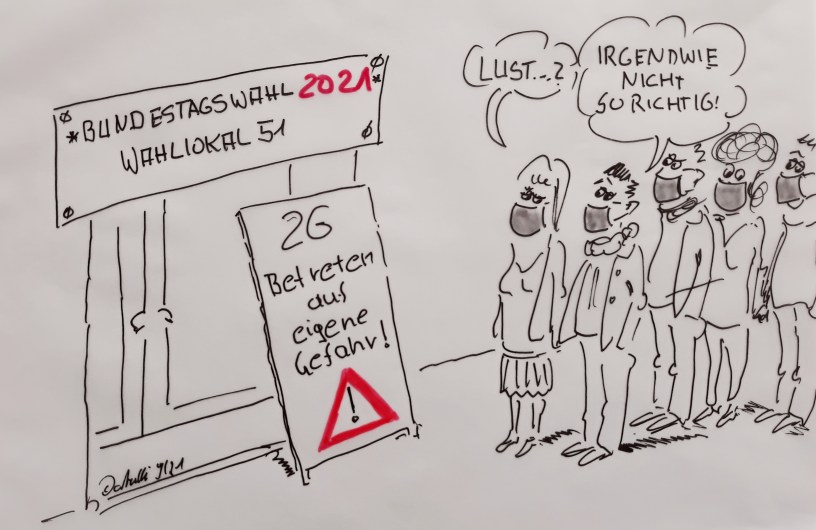 *BUNDESTAGSWAHL 2021*
WAHLLOKAL 51
2G
Betreten
aus
eigene
Gefahr!
!
LUST...?
IRGENDWIE
NICHT
SO RICHTIG!
9/21